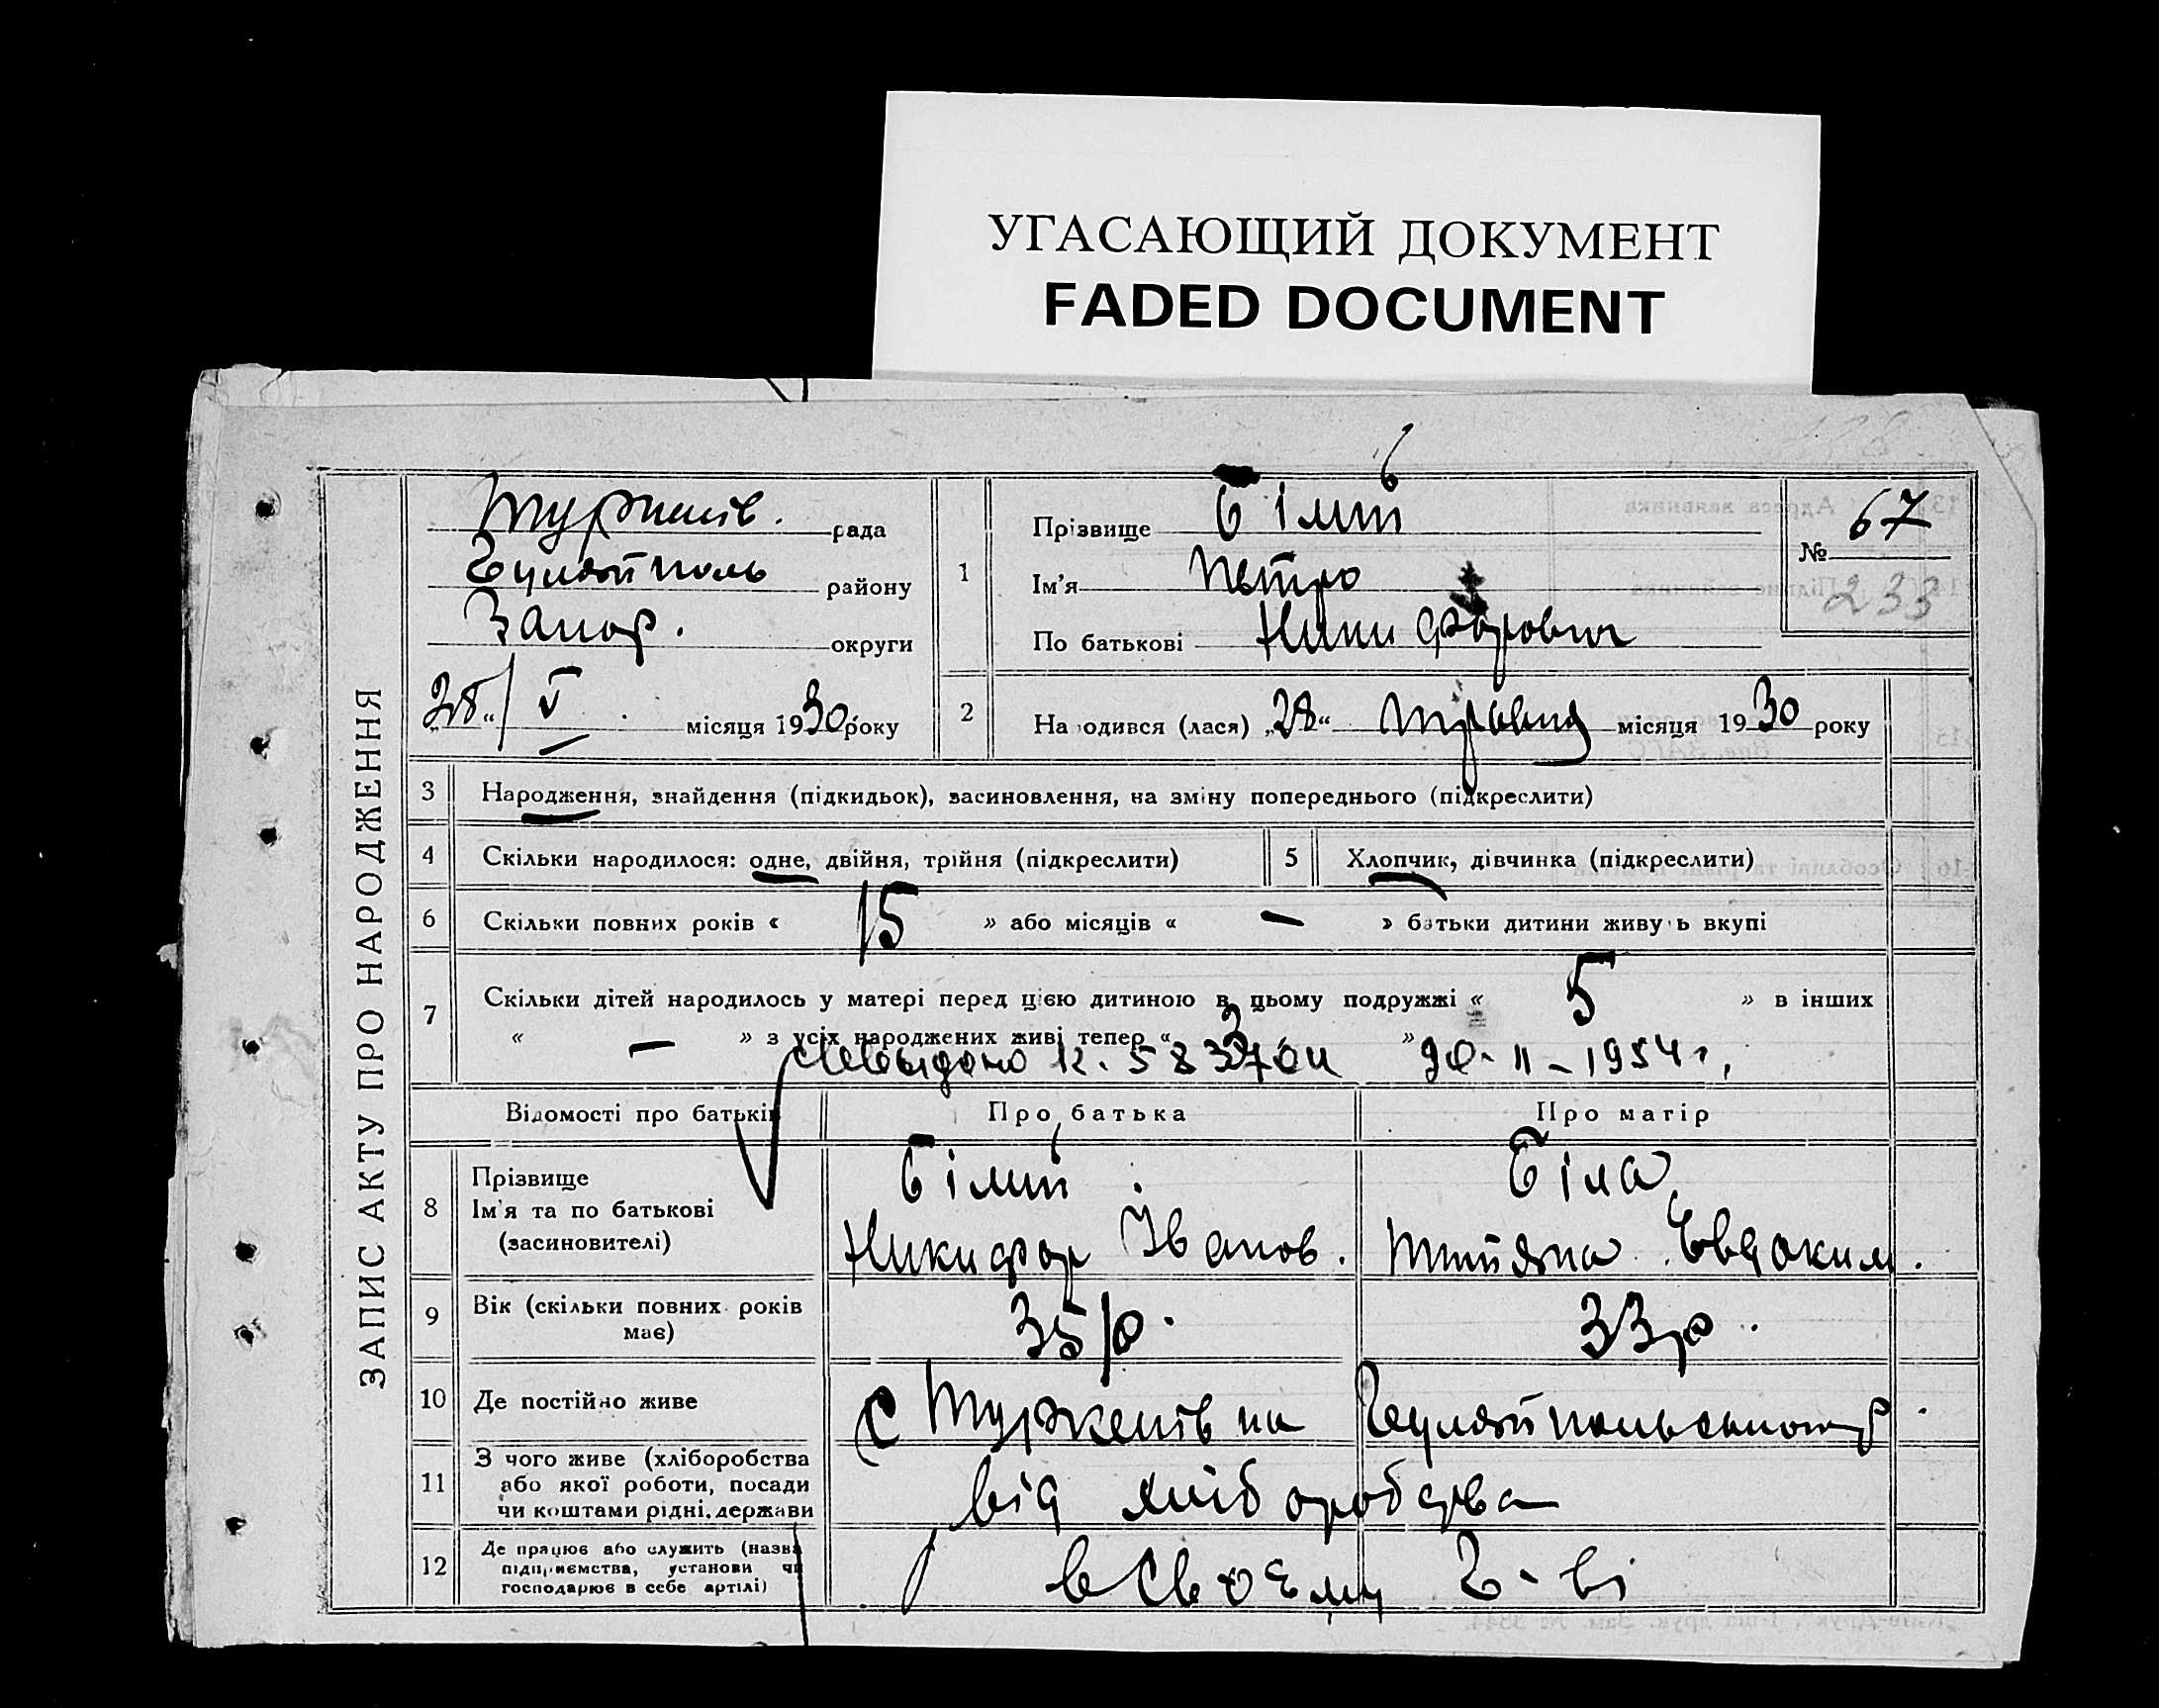 УГАСАЮЩИЙ ДОКУМЕНТ
FADED DOCUMENT
ЗАПИС АКТУ ПРО НАРОДЖЕННЯ
Туркенів. рада
Гуляйполь району
Запор. округи
„28“/V місяця 1930 року
1
Прізвище Білий
Ім'я Петро
По батькові Никифорович
№ 67
233
2 На одився (лася) „28“ травня місяця 1930 року
3 Народження, знайдення (підкидьок), засиновлення, на зміну попереднього (підкреслити)
4 Скільки народилося: одне, двійня, трійня (підкреслити)
5 Хлопчик, дівчинка (підкреслити)
6 Скільки повних років « 15 » або місяців « — » батьки дитини живу ь вкупі
7 Скільки дітей народилось у матері перед цією дитиною в цьому подружжі « 5 » в інших
« — » з усіх народжених живі тепер « 3 »
1954 г,
Відомості про батьків Про батька Про матір
8 Прізвище
Ім'я та по батькові
(засиновителі)
Білий
Никифор Іванов.
Біла
Тітяна Евдоким.
9 Вік (скільки повних років має) 35 р. 33 р.
10 Де постійно живе с Туркенівка Гуляйпольського р.
11 З чого живе (хліборобства
або якої роботи, посади
чи коштами рідні, держави
від хліборобства
12 Де працює або служить (назва
підприємства, установи чи
господарює в себе артілі)
в своєму г-ві